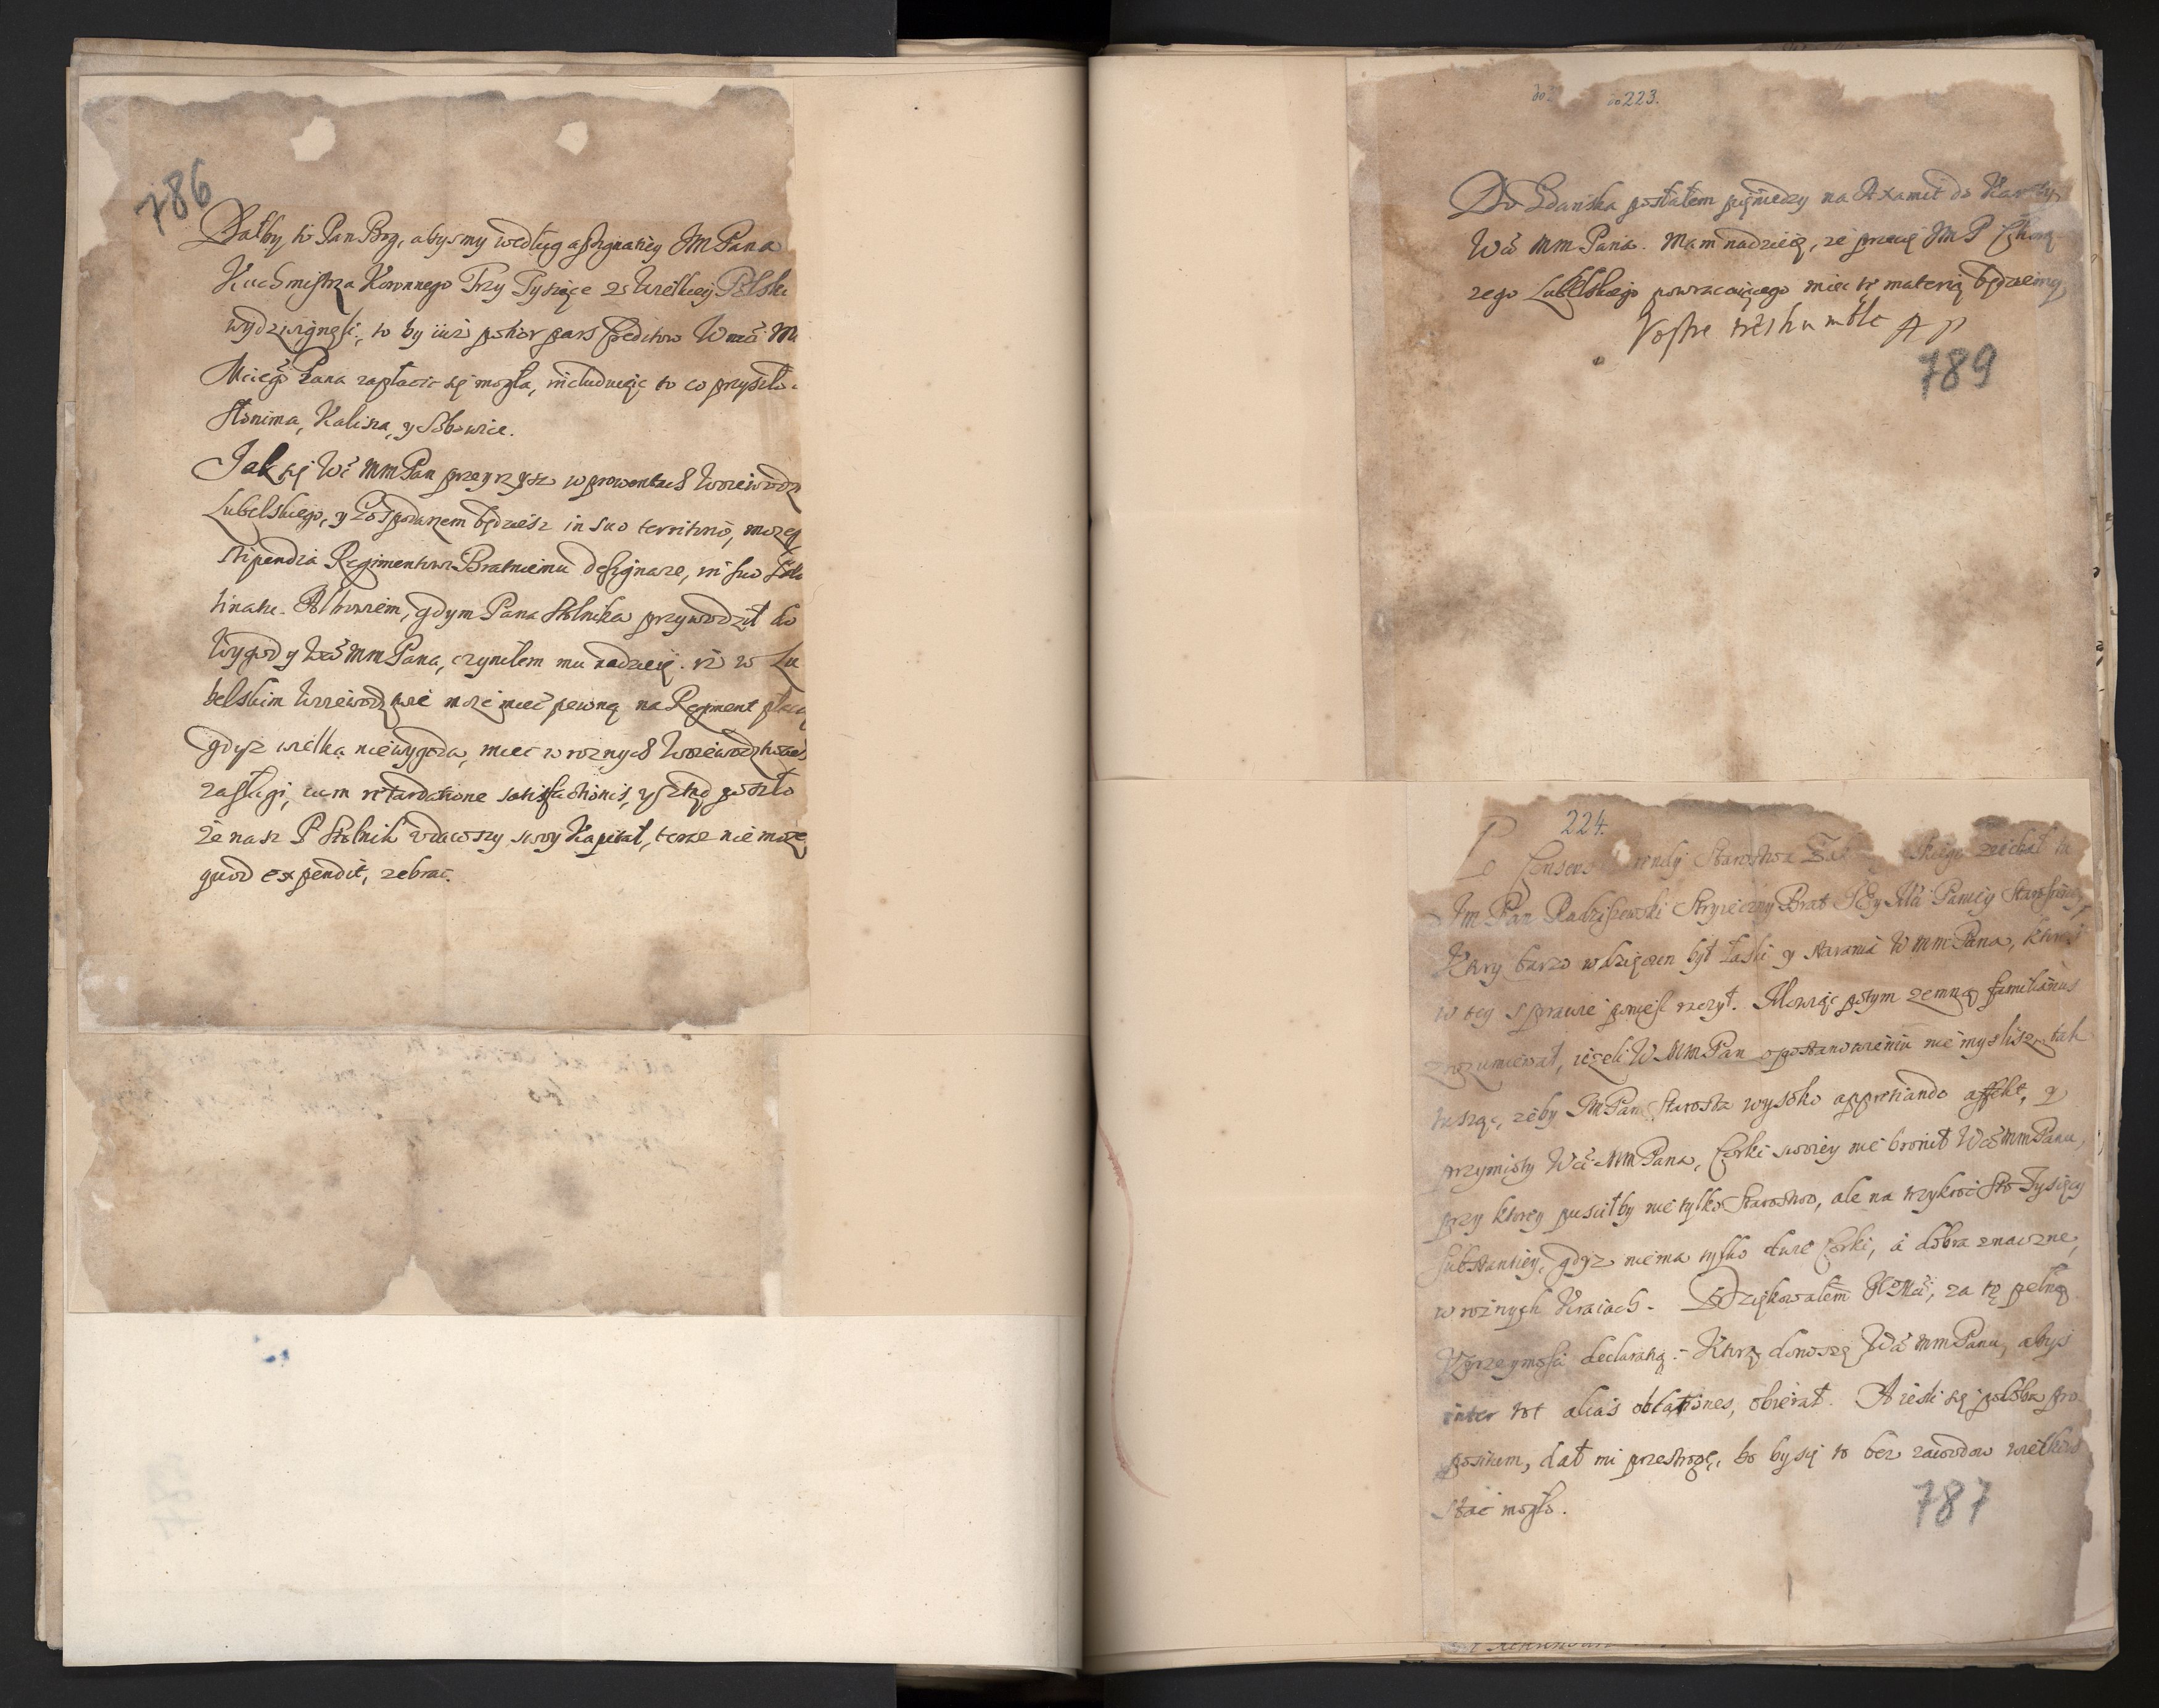 786
Dałby to Pan Bog, abysmy według assignatiey JM Pana
Kuchmistrza Koronnego Trzy Tysiące z Wielkiey Polski
wydzwignęli, to by iuż potior pars creditow Wmć M
Mciego Pana zapłacic się mogła, includuiąc to co przyszło
Słonima, Kalisza, y Sobowice.
Jak się Wć MM Pan przeyrzysz w prowentach Woiewodz
Lubelskiego, y Gospodarzem będziesz in suo territorio, mozesz
stipendia Regimentowi Bratniemu designare, in suo Pala
tinatu. Albowiem, gdym Pana Stolnika przywodził do
Wygody Wć MM Pana, czyniłem mu nadzieię. iż w Lu
belskim Woiewodztwie może mieć pewną na Regiment płacą
gdyz wielka niewygoda, miec w roznych Woiewodztwach
zasługi, cum retardatione satisfactionis, y ztąd poszło
że nasz P Stolnik wdawszy swoy Kapitał, teraz nie może
quod expendit, zebrac.
do 223.
Do Gdańska posłałem pieniedzy na Axamit do Karety
Wć MM Pana. Mam nadzieię, że przez JM P Chorą
zego Lubelskiego powracaiącego miec tę materią będziemy
Vostre trèshumble A P
789
224.
Po Consens Arendy Starostwa skiego zaiechał tu
Jm Pan Radziszewski Stryieczny Brat JEy Mći Paniey Starosciney,
Ktory barzo wdzięczen był łaski y starania W MM Pana, ktore
w tey sprawie ponieść raczył. Mowiąc potym zemną familiarius
zrozumiewał, ieżeli W MM Pan o postanowieniu nie myslisz, tak
tusząc, żeby JM Pan Starosta wysoko appretiando affekt, y
przymioty Wć MM Pana, Corki swoiey nie bronił Wć MM Panu,
przy ktorey puscił by nie tylko Starostwo, ale na trzykroć sto Tysięcy
substantiey, gdyz nie ma tylko dwie Corki, á dobra znaczne,
w roznych Kraiach. Dziękowałem JEo Mći, za tę pełną
Vprzeymości declaratią. Ktorą donoszę Wć MM Panu, abyś
inter tot alias oblationes, obierał. A iesli się podoba pro
positum, dał mi przestrogę, bo by się to bez zawodow wielkich
stac mogło.
787